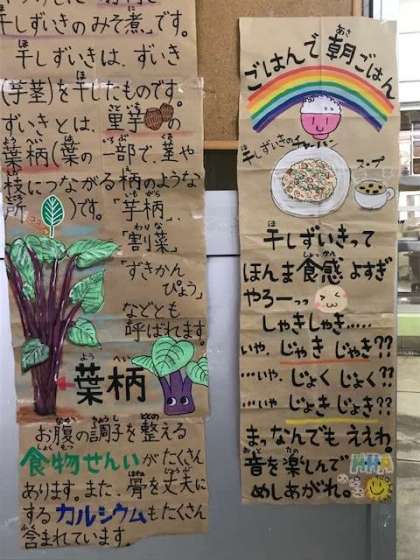 干しずいきのみそ煮」です。
干しずいきは、ずいき
(芋茎)を干したものです。
ずいきとは、里芋の
葉柄(葉の一部で、茎や
枝につながる柄のような
所)です。「芋柄」、
「割菜」
「ずきかん
ぴょう」
などとも
呼ばれます。
葉柄
お腹の調子を整える
食物せんいがたくさん
あります。また、骨を丈夫に
するカルシウムもたくさん
含まれています。
ごはんで朝ごはん
干しずいきのチャーハン
スープ
干しずいきって
ほんま食感よすぎ
やろーっっ
しゃきしゃき.....
いや、じゃきじゃき??
…いや、じょくじょく??
…いや、じょきじょき??
まっなんでもええわ
音を楽しんで
めしあがれ。